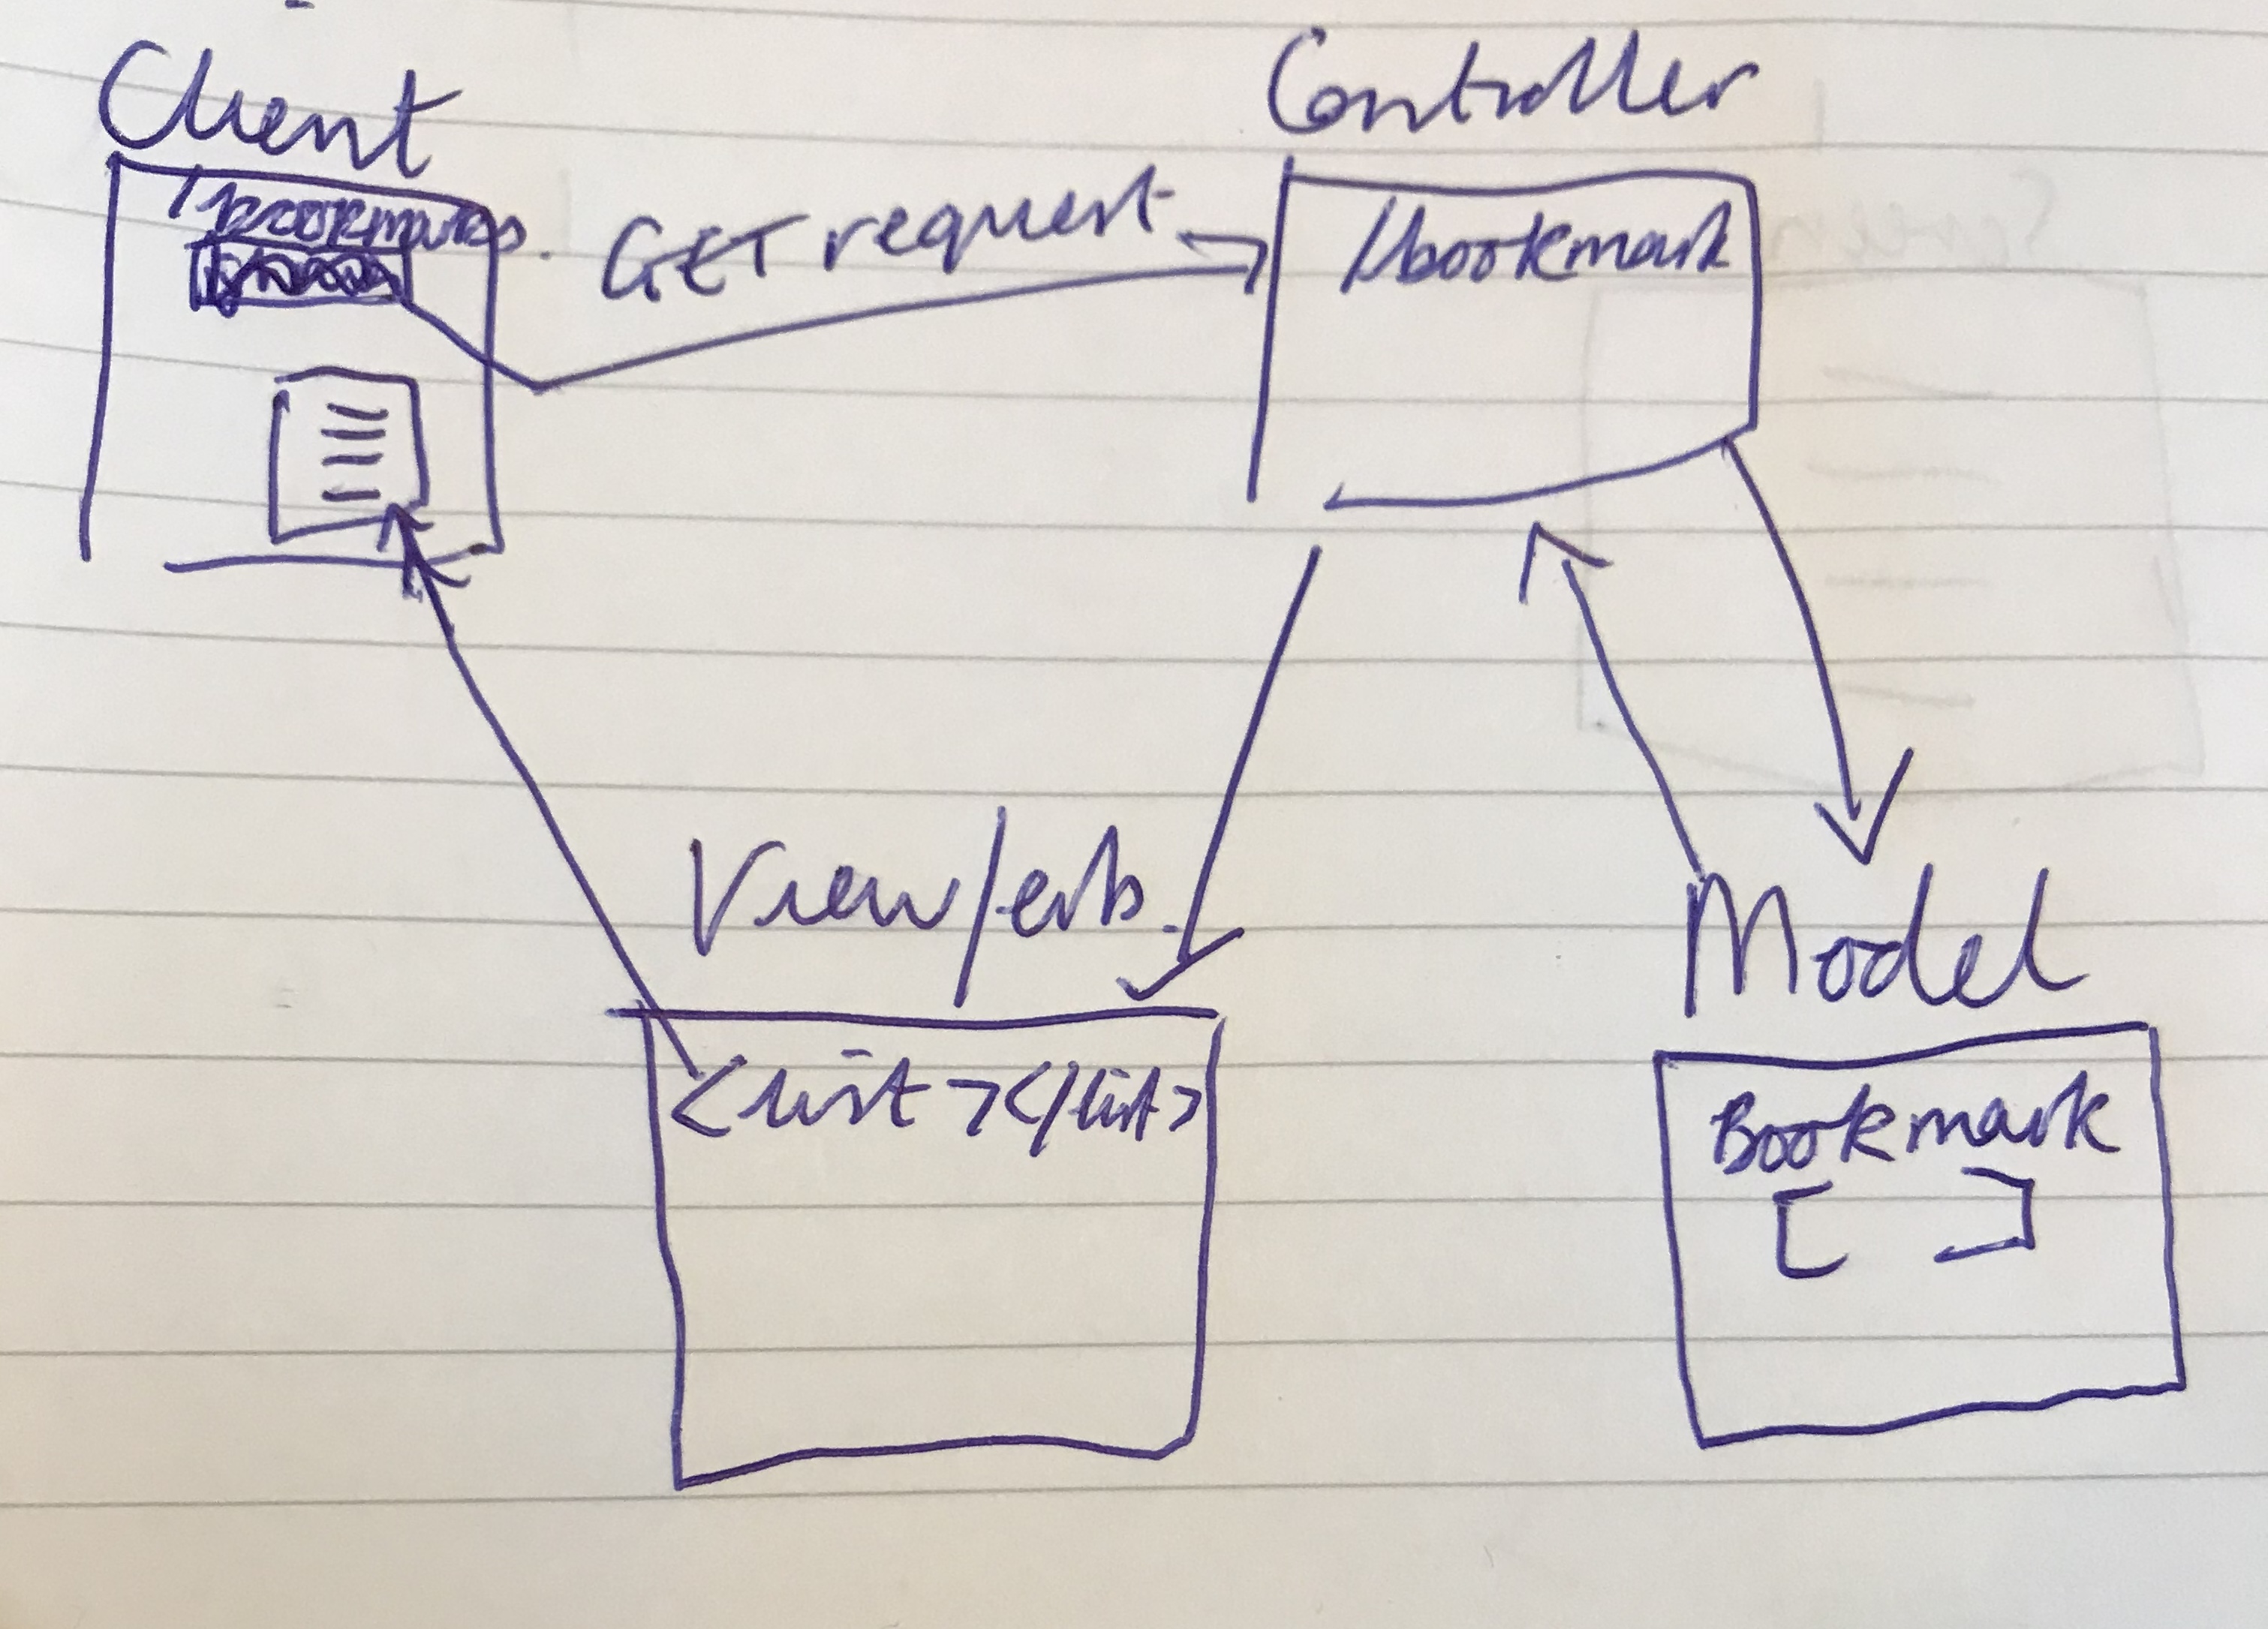 Client
/bookmarks.
GET request
Controller
/bookmark
View/erb
<list></list>
Model
Bookmark
[ ]